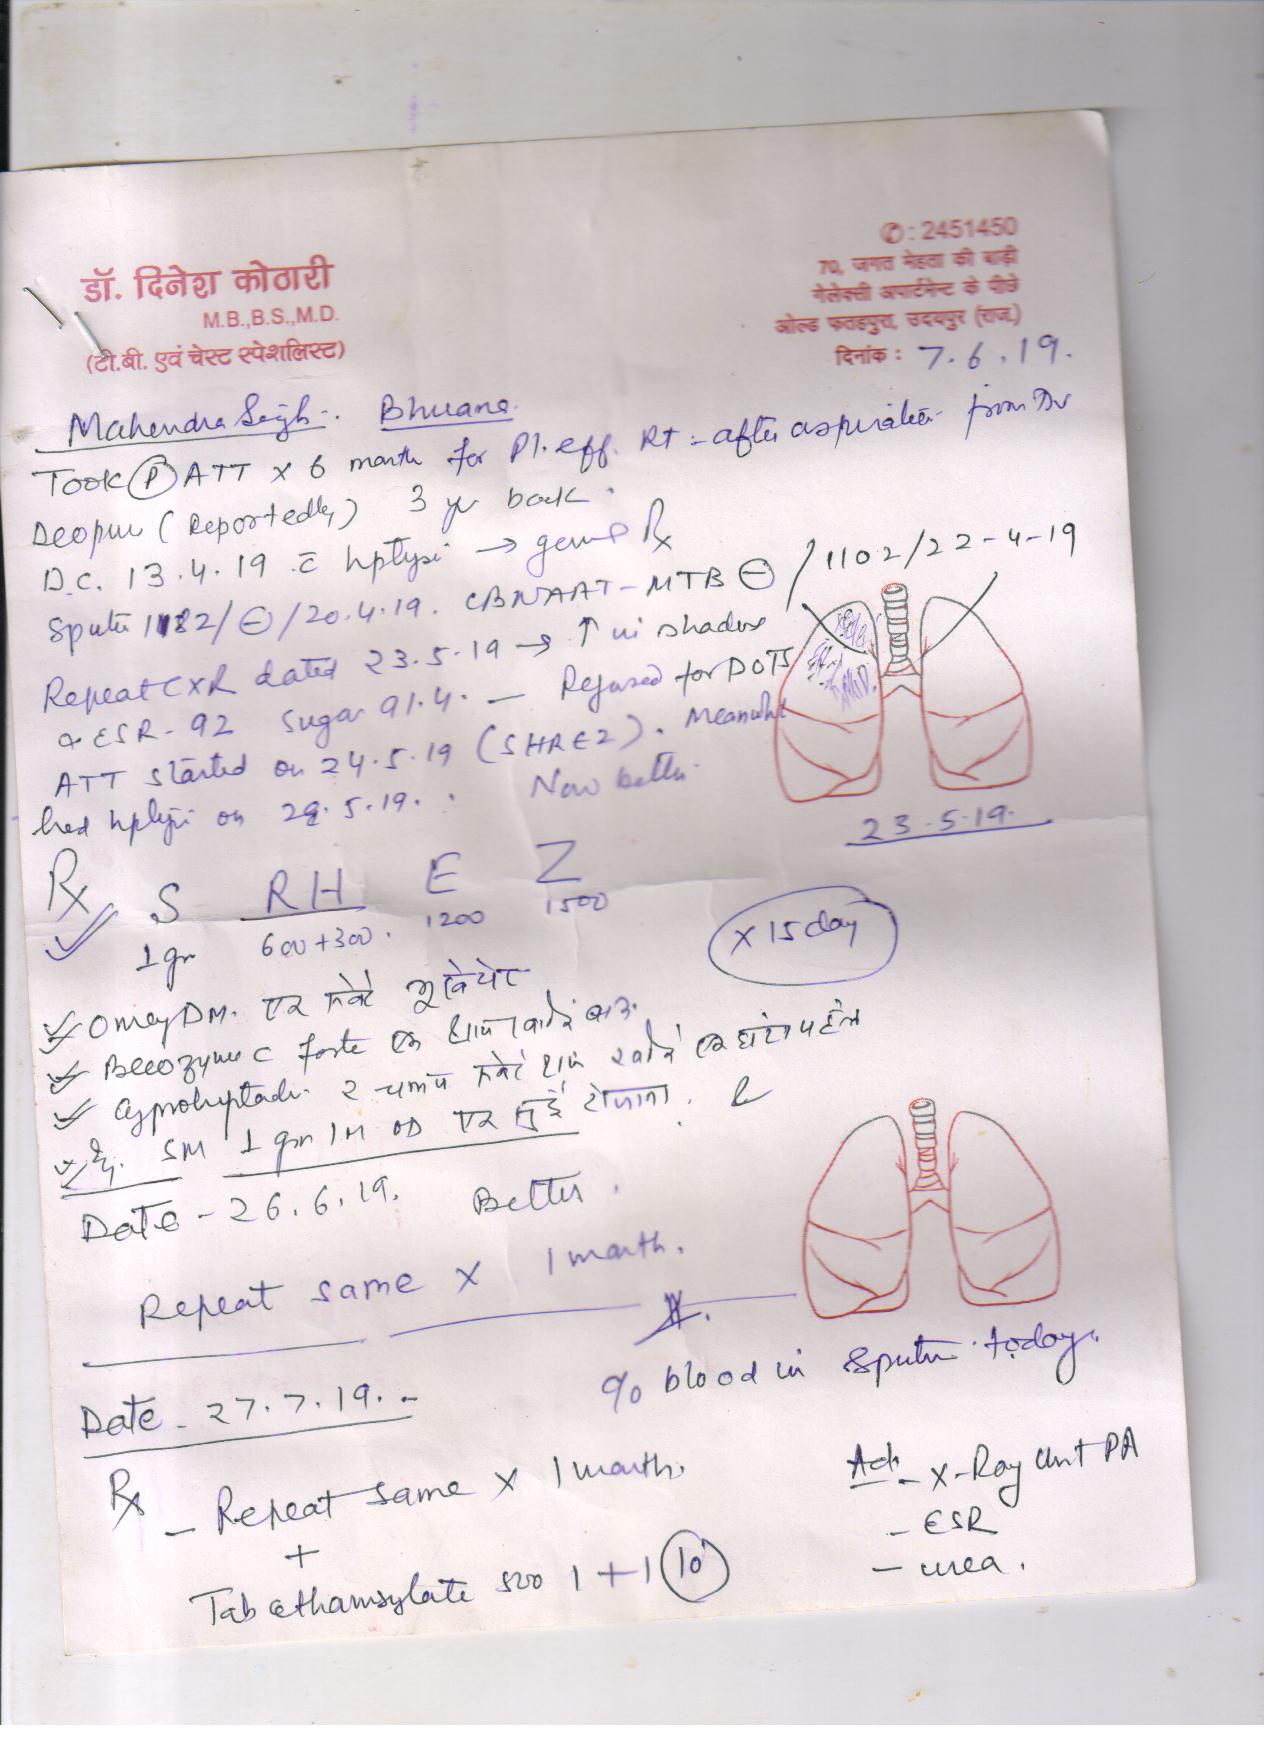 ✆: 2451450
डॉ. दिनेश कोठारी
M.B.,B.S.,M.D.
(टी.बी. एवं चेस्ट स्पेशलिस्ट)
70, जगत मेहता की बाड़ी
गेलेक्सी अपार्टमेन्ट के पीछे
ओल्ड फतहपुरा, उदयपुर (राज.)
दिनांक : 7.6.19.
Mahendra Singh. Bhuana.
Took (P) ATT x 6 month for Pl. eff. Rt - after aspiration from Dr
Deopura (Reportedly) 3 yr back.
D.C. 13.4.19 c̄ hptysi → Rx
Sputu 1182/⊖/20.4.19. CBNAAT-MTB ⊖ /1102/22-4-19
Repeat CXR dated 23.5.19 → ↑ in shadow
& ESR-92 Sugar 91.4. — Refused for DOTS
ATT started on 24.5.19 (SHREZ). Meanwhile
had hptysi on 29.5.19. Now better.
23.5.19.
Rx S RH E Z
1gm 600+300. 1200 1500
x 15 day
Omez DM. एक सवेरे भूखे पेट
Becozyme C forte एक शाम खाने के बाद.
Cyproheptadi. 2 चम्मच सवेरे शाम खाने से एक घंटा पहले
SM 1 gm IM OD एक सुई रोजाना.
Date - 26.6.19. Better.
Repeat same x 1 month.
% blood in sputu today.
Date - 27.7.19.
Rx - Repeat same x 1 month.
+
Tab ethamsylate 500 1+1 (10)
Adv - X-Ray chest PA
- ESR
- urea.